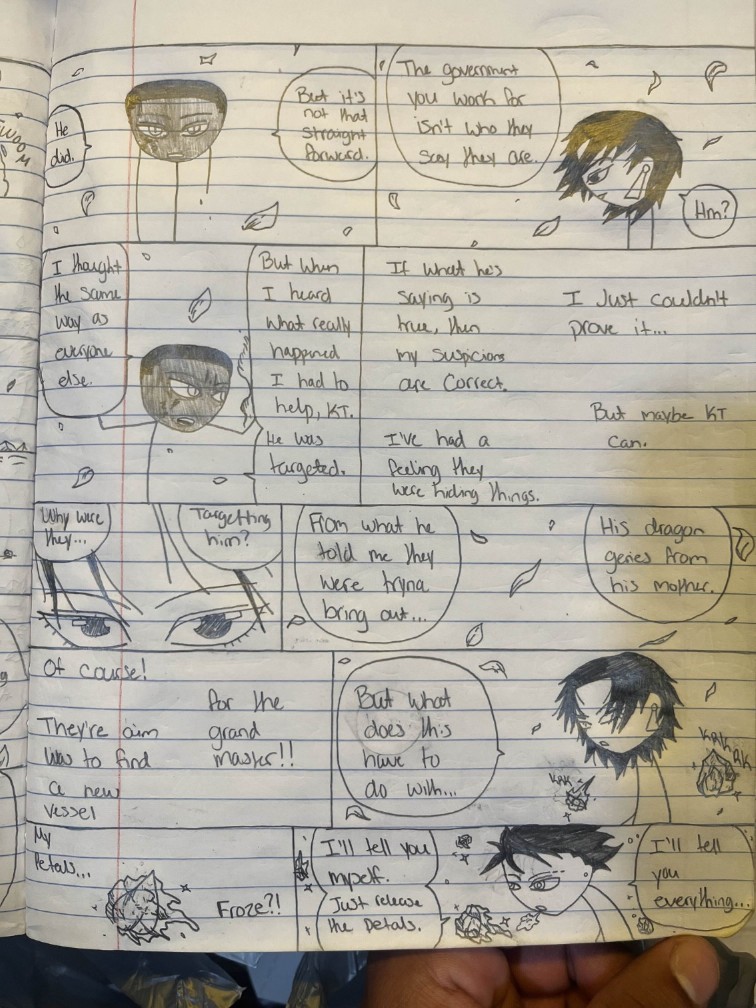 He
did.
But it's
not that
straight
forward.
The government
you work for
isn't who they
say they are.
Hm?
I thought
the same
way as
everyone
else.
But when
I heard
what really
happened
I had to
help, KT.
He was
targeted.
If what he's
saying is
true, then
my suspicions
are correct.
I've had a
feeling they
were hiding things.
I Just couldn't
prove it...
But maybe KT
can.
Why were
they...
Targetting
him?
From what he
told me they
were tryna
bring out...
His dragon
genes from
his mother.
Of course!
They're aim
was to find
a new
vessel
for the
grand
master!!
But what
does this
have to
do with...
KRK
KRK
RK
My
Petals...
Froze?!
I'll tell you
myself.
Just release
the Petals.
I'll tell
you
everything...